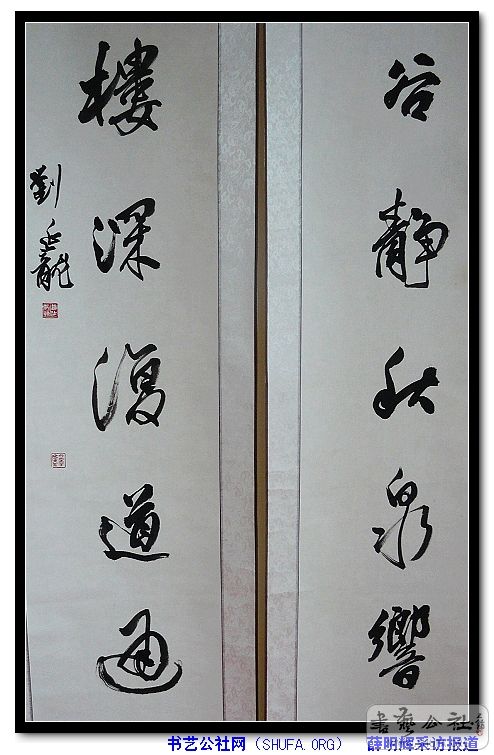 谷靜秋泉響
樓深復道通
劉龍
書藝公社
书艺公社网（SHUFA.ORG） 薛明辉采访报道